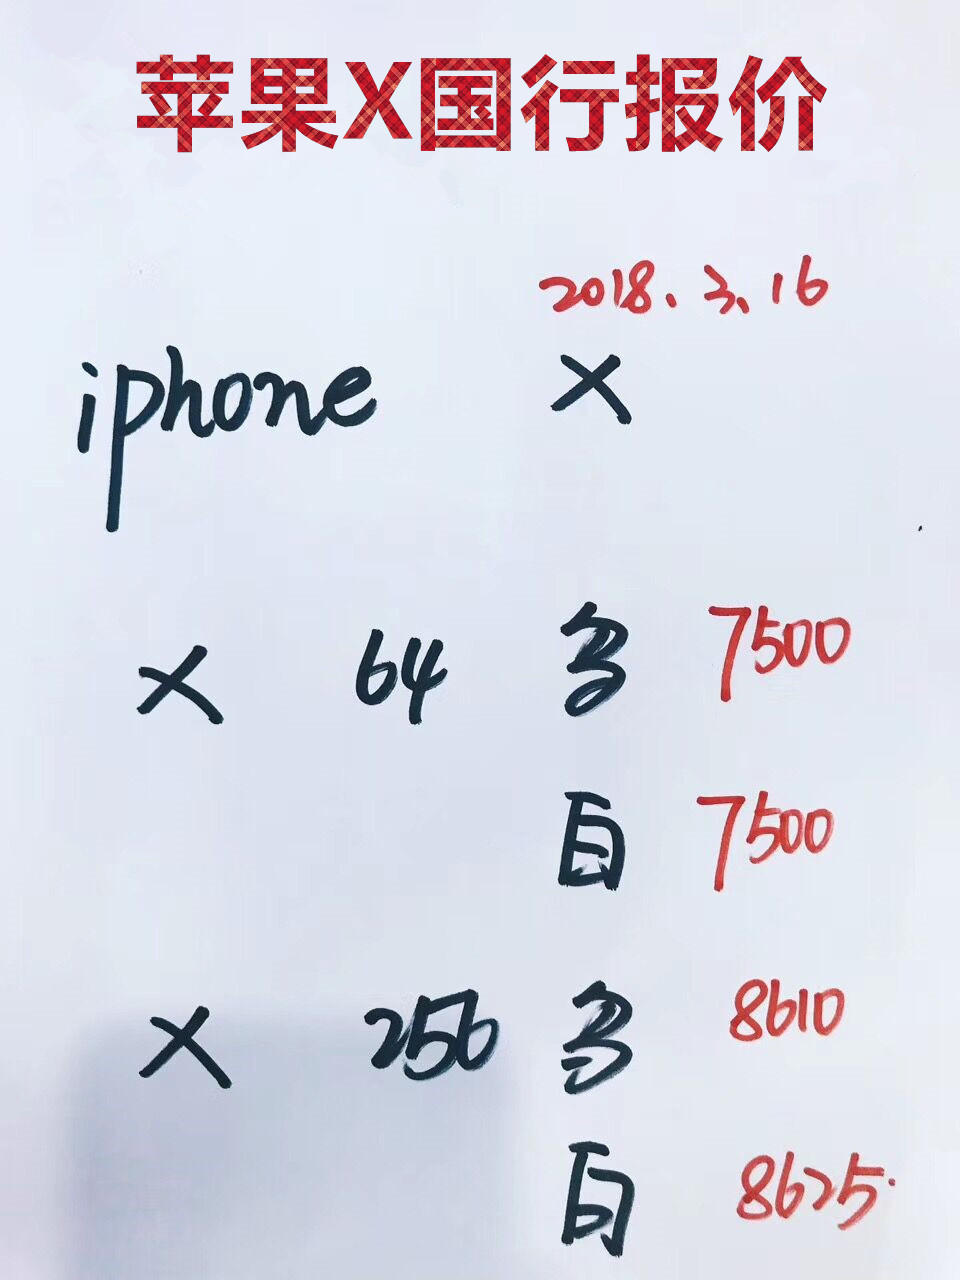 苹果X国行报价
2018.3.16
iphone X
X 64 多 7500
白 7500
X 256 多 8610
白 8625.